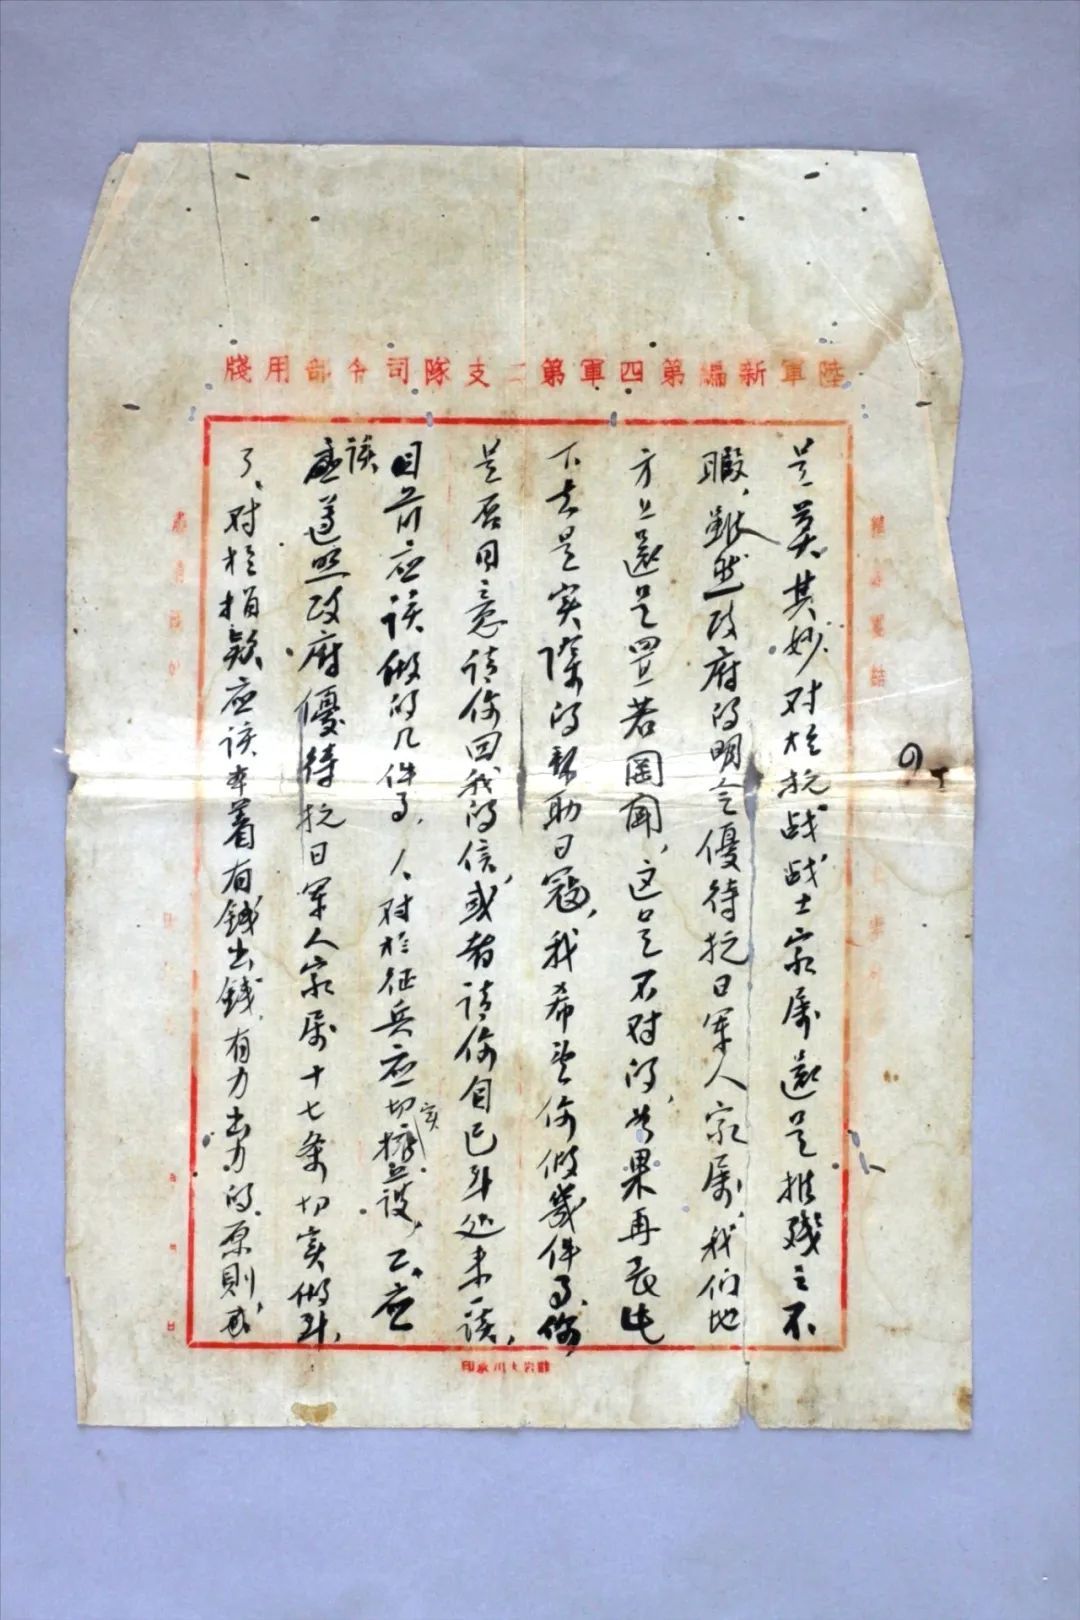 陸軍新編第四軍第二支隊司令部用牋
是莫其妙对於抗战战士家属還是摧残之不
暇、雖然政府的明令優待抗日军人家属、我们地
方上還是置若罔闻、这是不对的、如果再長此
下去是实际的帮助日寇、我希望你做幾件事、你
是否同意请你回我的信、或者请你自已斗处来一谈、
目前应该做的几件事、1、对於征兵应切实拥设、2、应
该遵照政府優待抗日军人家属十七条切实做到、
了、对於捐款应该本着有錢出錢、有力出力的原則或
9